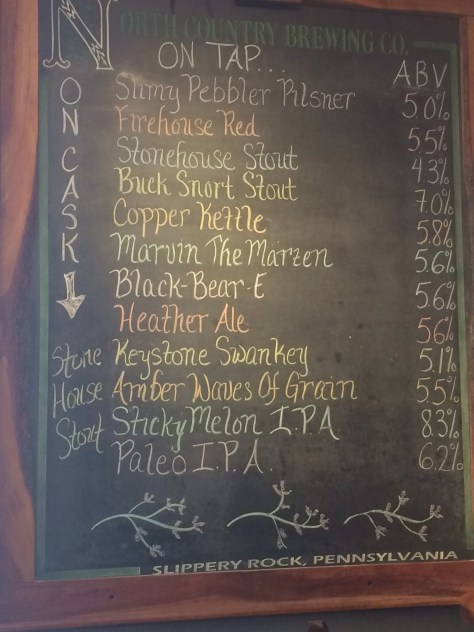 NORTH COUNTRY BREWING CO.
ON TAP...
ABV
Slimy Pebbler Pilsner 5.0%
Firehouse Red 5.5%
Stonehouse Stout 4.3%
Buck Snort Stout 7.0%
Copper Kettle 5.8%
Marvin The Märzen 5.6%
Black-Bear-E 5.6%
Heather Ale 5.6%
Keystone Swankey 5.1%
Amber Waves Of Grain 5.5%
Sticky Melon I.P.A. 8.3%
Paleo I.P.A. 6.2%
ON CASK
Stone
House
Stout
SLIPPERY ROCK, PENNSYLVANIA